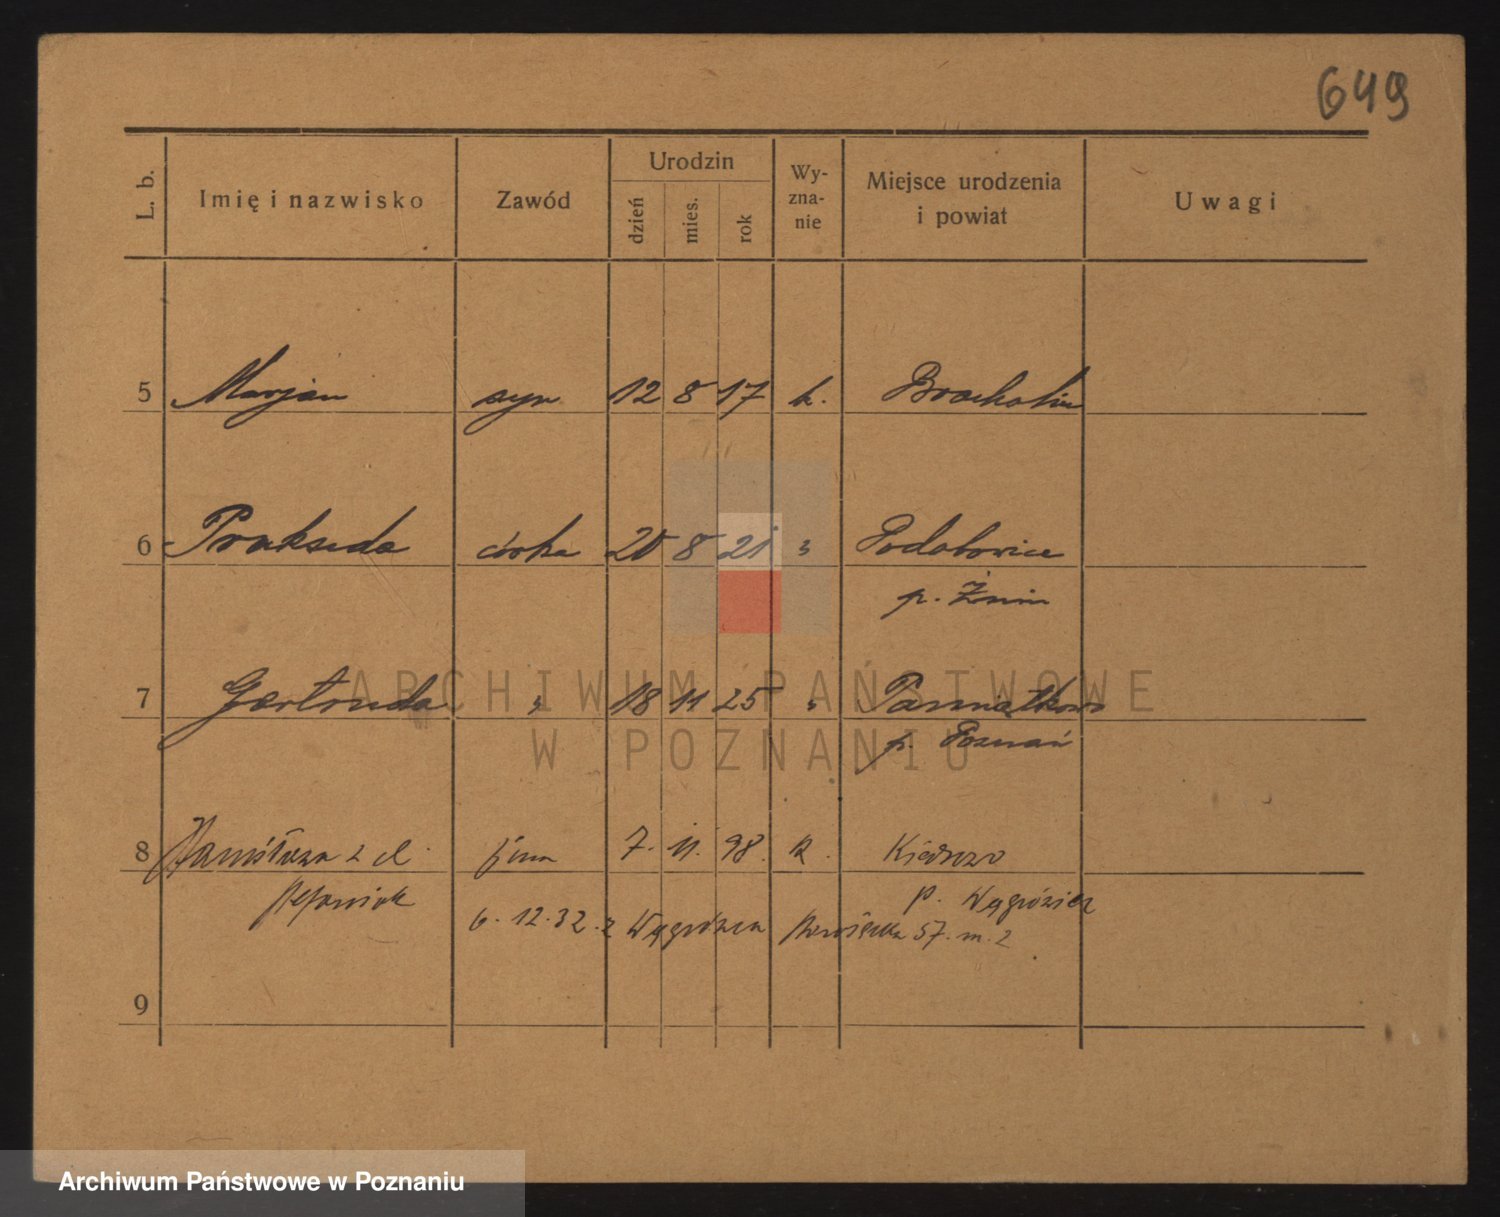 649
L. b. Imię i nazwisko Zawód Urodzin dzień mies. rok Wy-zna-nie Miejsce urodzenia i powiat Uwagi
5 Marjan syn 12 8 17 k. Bracholin
6 Prakseda córka 20 8 21 " Podobowice
p. Żnin
7 Gertruda " 18 11 25 " Pamiątkowo
p. Poznań
8 Stanisława z d. żona 7. 11. 98. k. 
Stefaniak p. Wągrówiec
6. 12. 32. z Wągrówca 57. m. 2
9
ARCHIWUM PAŃSTWOWE
W POZNANIU
Archiwum Państwowe w Poznaniu